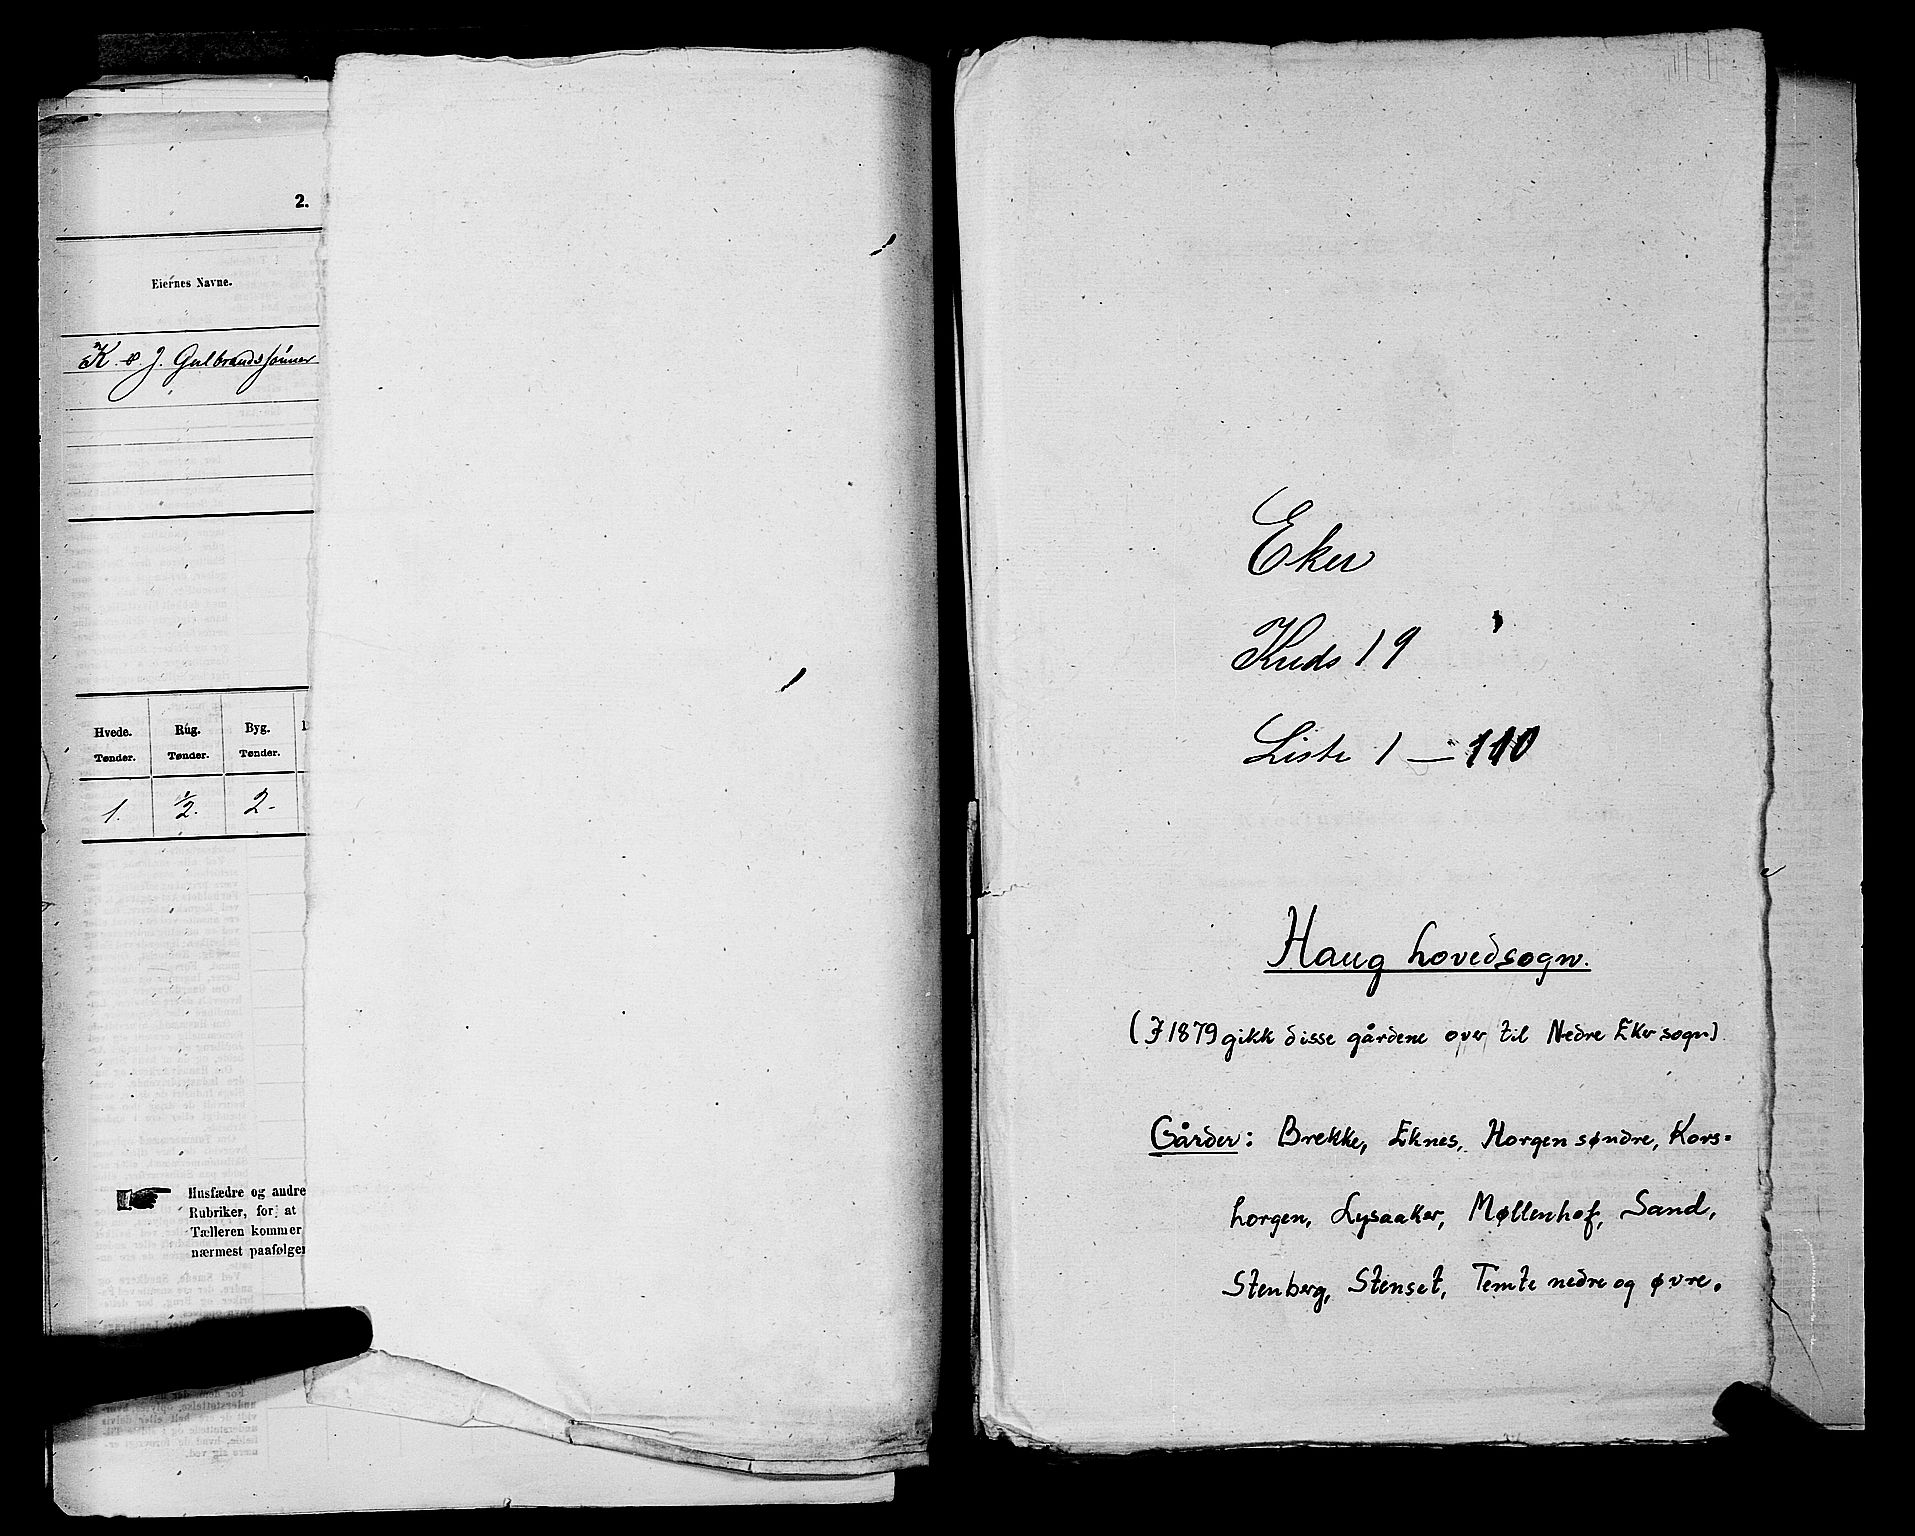 2.
Eiernes Navne.
K. & J. Gulbrandssönner
Hvede. Rúg. Byg.
Tønder. Tønder. Tønder.
1. ½. 2-
Husfædre og andre
Rubriker, for at
Tælleren kommer
nærmest paafølgen
Eker
Kreds 19
Liste 1 — 110
Haug hovedsogn.
(I 1879 gikk disse gårdene over til Nedre Eker sogn)
Gårder: Brekke, Eknes, Horgen søndre, Kors=
horgen, Lysaaker, Møllenhof, Sand,
Stenberg, Stenset, Temte nedre og øvre.